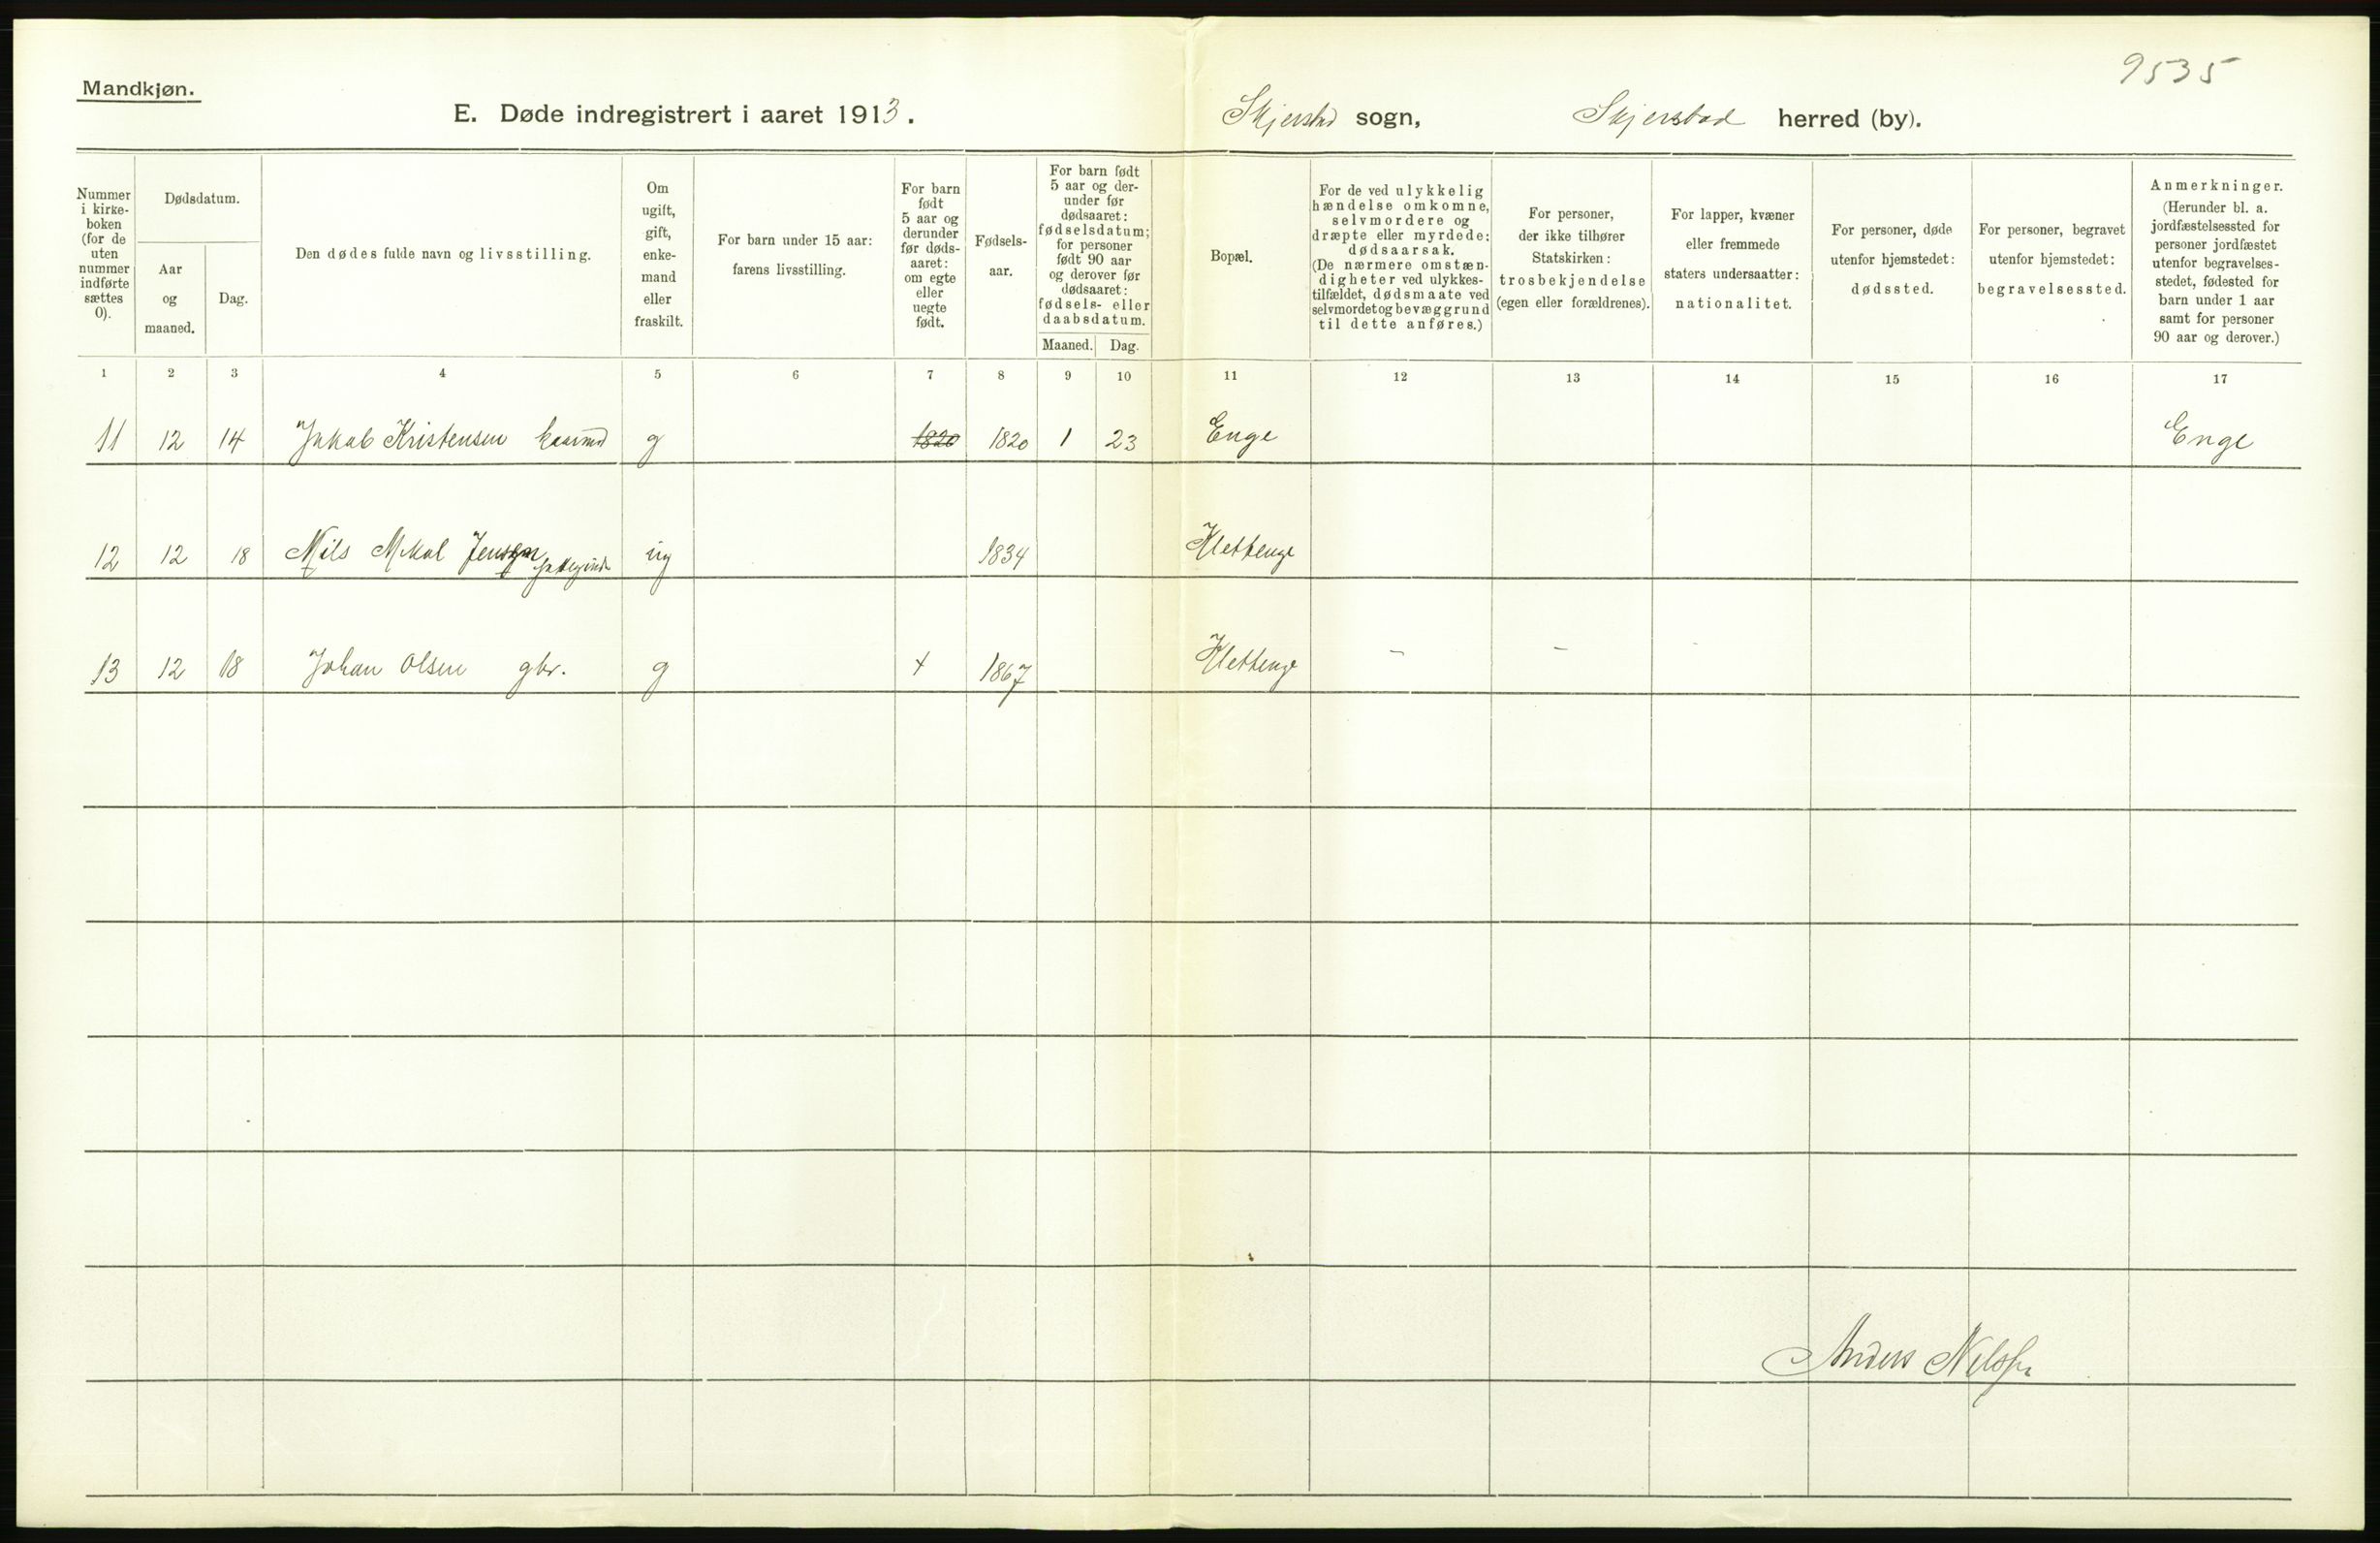 9535
Mandkjøn.
E. Døde indregistrert i aaret 1913.
Skjerstad sogn, Skjerstad herred (by).
Nummer i kirke-boken (for de uten nummer indførte sættes 0).
Dødsdatum.
Aar og maaned.
Dag.
Den dødes fulde navn og livsstilling.
Om ugift, gift, enke-mand eller fraskilt.
For barn under 15 aar: farens livsstilling.
For barn født 5 aar og derunder før døds-aaret: om egte eller uegte født.
Fødsels-aar.
For barn født 5 aar og der-under før dødsaaret: fødselsdatum; for personer født 90 aar og derover før dødsaaret: fødsels- eller daabsdatum.
Maaned. Dag.
Bopæl.
For de ved ulykkelig hændelse omkomne, selvmordere og dræpte eller myrdede: dødsaarsak. (De nærmere omstæn-digheter ved ulykkes-tilfældet, dødsmaate ved selvmordet og bevæggrund til dette anføres.)
For personer, der ikke tilhører Statskirken: trosbekjendelse (egen eller forældrenes).
For lapper, kvæner eller fremmede staters undersaatter: nationalitet.
For personer, døde utenfor hjemstedet: dødssted.
For personer, begravet utenfor hjemstedet: begravelsessted.
Anmerkninger. (Herunder bl. a. jordfæstelsessted for personer jordfæstet utenfor begravelses-stedet, fødested for barn under 1 aar samt for personer 90 aar og derover.)
1 2 3 4 5 6 7 8 9 10 11 12 13 14 15 16 17
11 12 14 Jakob Kristensen kaarmd g 1820 1820 1 23 Enge Enge
12 12 18 Nils Mikal Jensen ug 1834 Klettenge
13 12 18 Johan Olsen gbr. g + 1867 Klettenge - -
Anders Nilsen